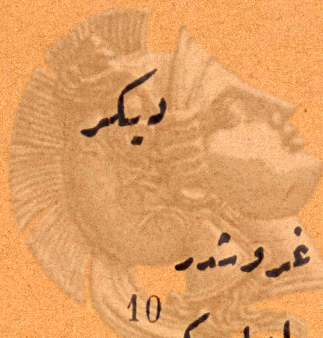 دیکر
غروشدر
10